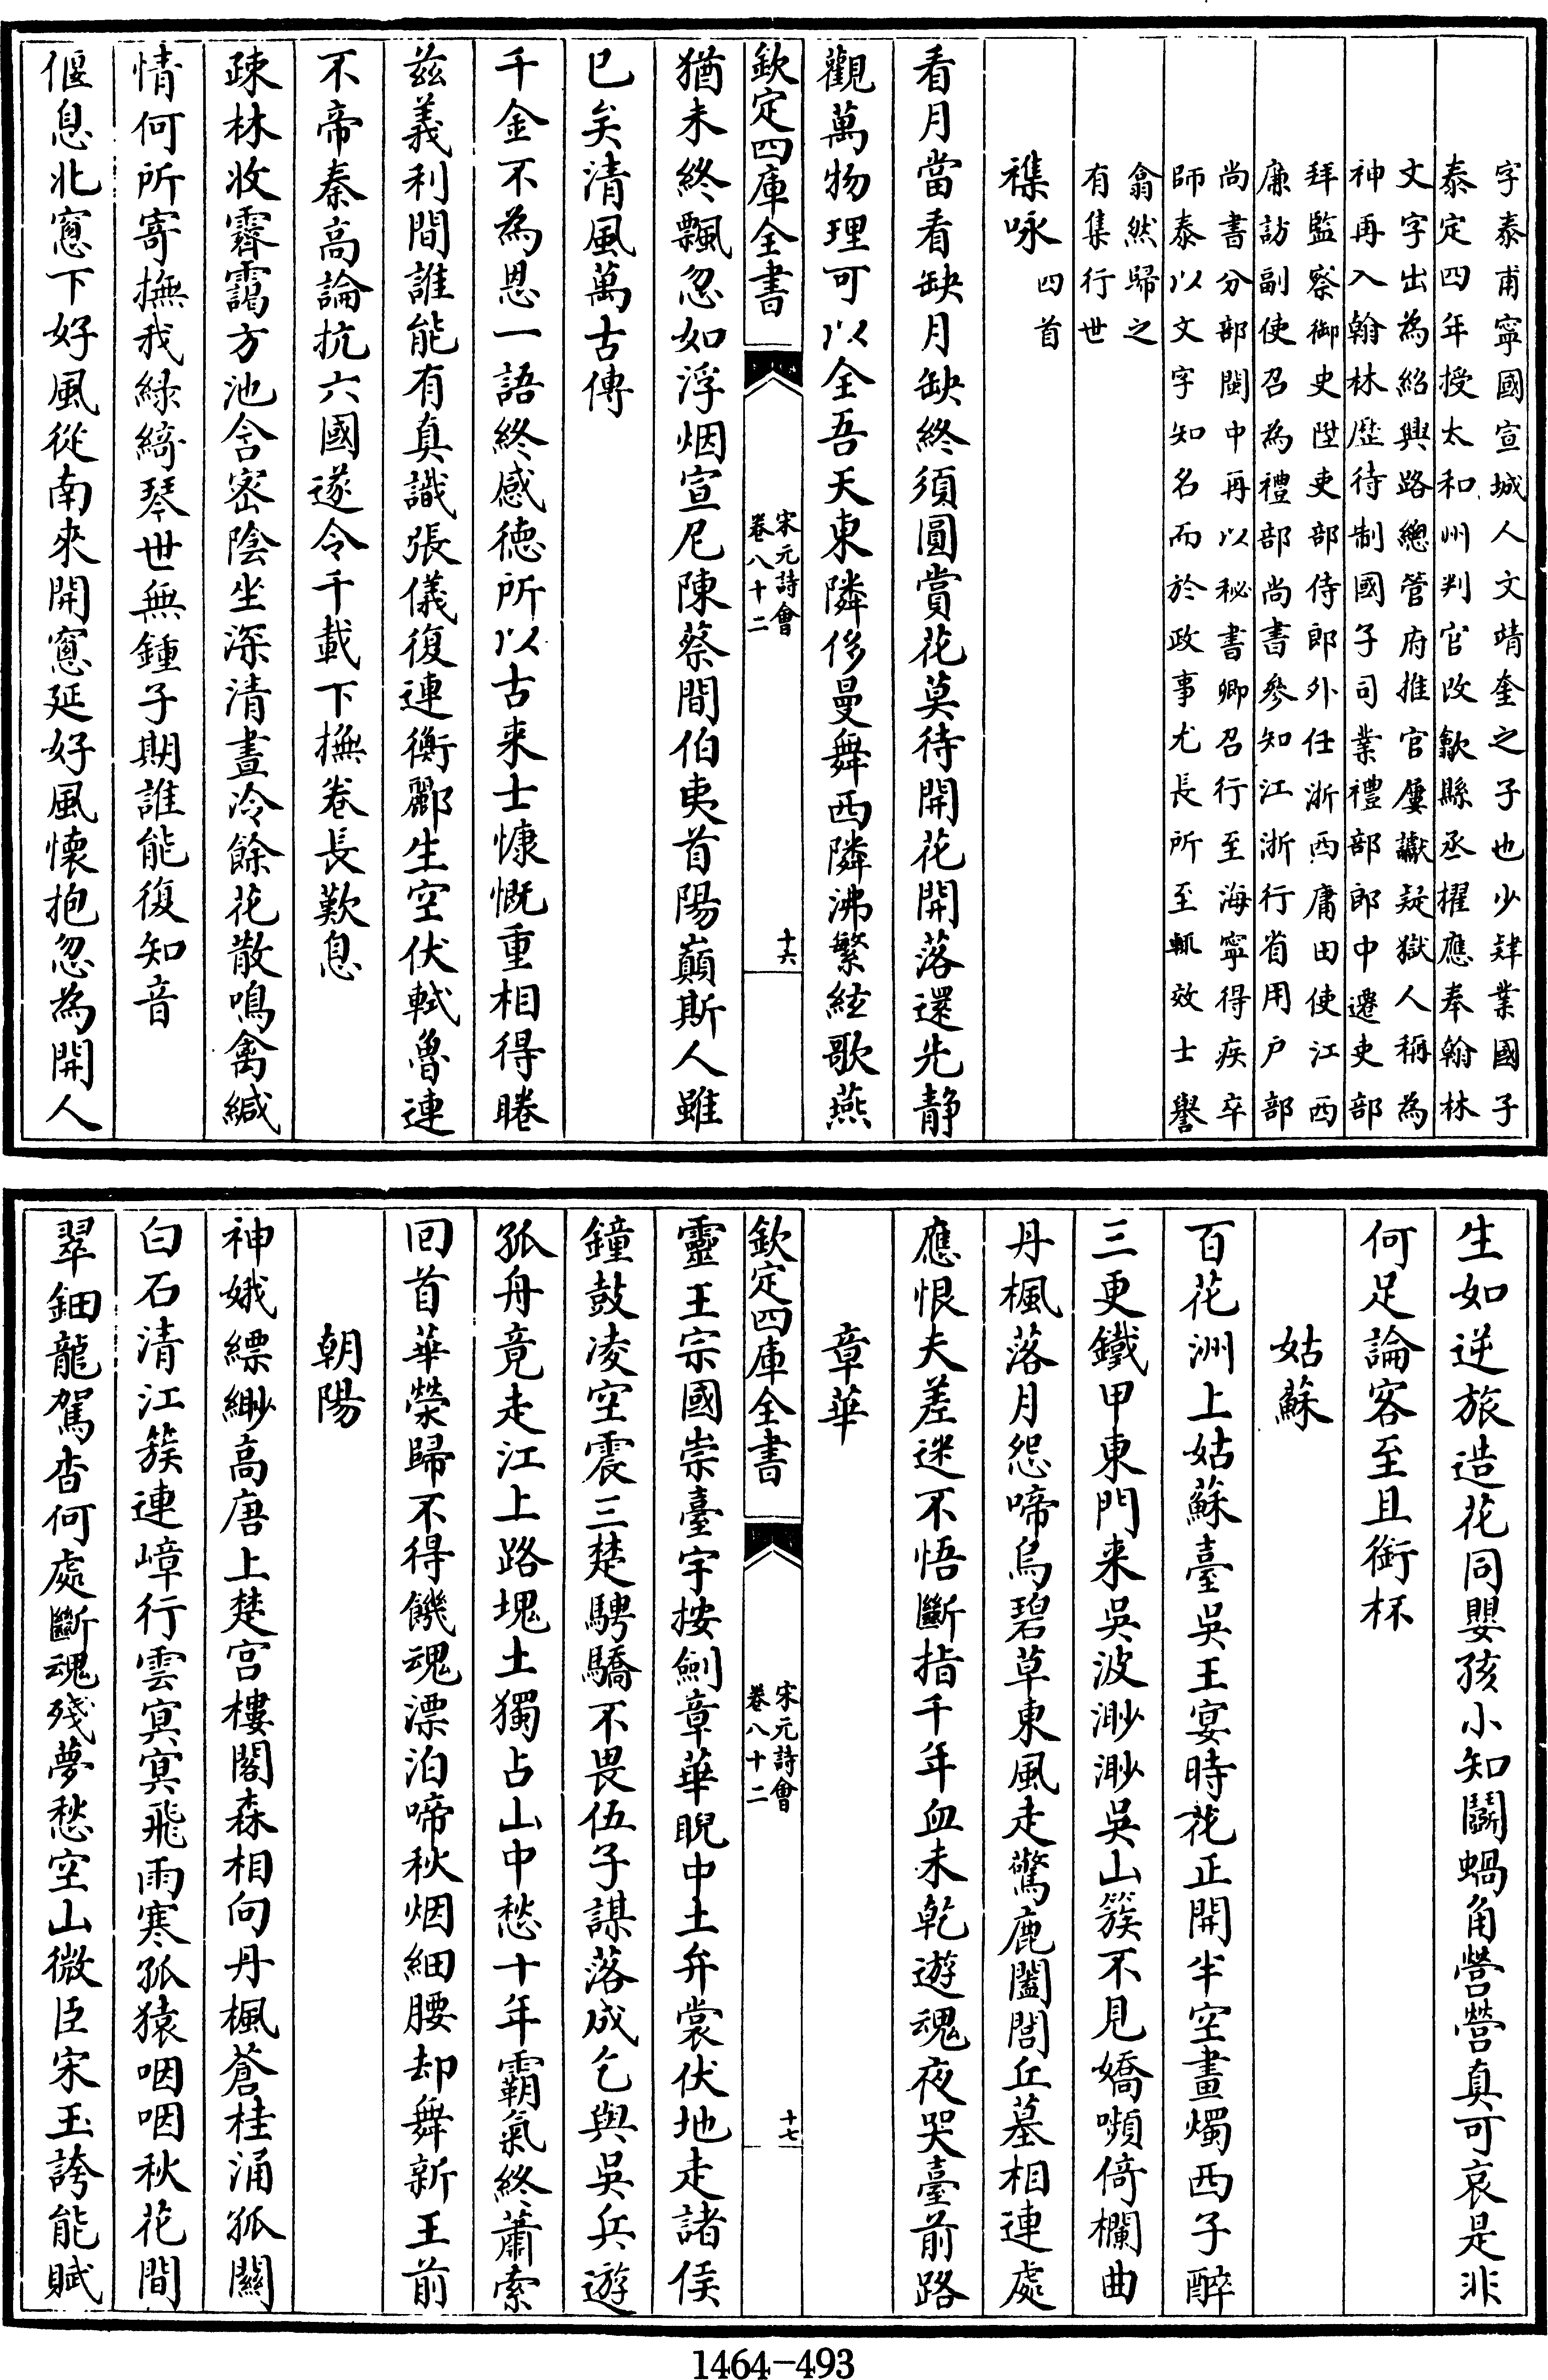 字泰甫寧國宣城人文靖奎之子也少肄業國子
泰定四年授太和州判官改歙縣丞擢應奉翰林
文字出為紹興路總管府推官屢讞疑獄人稱為
神再入翰林歷待制國子司業禮部郎中遷吏部
拜監察御史陞吏部侍郎外任浙西庸田使江西
廉訪副使召為禮部尚書參知江浙行省用户部
尚書分部閩中再以秘書卿召行至海寧得疾卒
師泰以文字知名而於政事尤長所至輒效士譽
翕然歸之
有集行世
襍咏四首
看月當看缺月缺終須圓賞花莫待開花開落還先静
觀萬物理可以全吾天東隣侈曼舞西隣沸繁絃歌燕
欽定四庫全書
宋元詩會
卷八十二
十六
猶未終飄忽如浮烟宣尼陳蔡間伯夷首陽巔斯人雖
已矣清風萬古傳
千金不為恩一語終感德所以古来士慷慨重相得睠
兹義利間誰能有真識張儀復連衡酈生空伏軾魯連
不帝秦高論抗六國遂令千載下撫卷長歎息
疎林收霽靄方池含宻陰坐深清晝冷餘花散鳴禽緘
情何所寄撫我緑綺琴世無鍾子期誰能復知音
偃息北窻下好風從南來開窻延好風懷抱忽為開人
生如逆旅造花同嬰孩小知鬬蝸角營營真可哀是非
何足論客至且銜杯
姑蘇
百花洲上姑蘇臺吳王宴時花正開半空畫燭西子醉
三更鐵甲東門来吳波渺渺吳山簇不見嬌嚬倚欄曲
丹楓落月怨啼烏碧草東風走驚鹿闔閭丘墓相連處
應恨夫差迷不悟斷指千年血未乾遊魂夜哭臺前路
章華
欽定四庫全書
宋元詩會
卷八十二
十七
靈王宗國崇臺宇按劍章華睨中土弁裳伏地走諸侯
鐘鼓凌空震三楚騁驕不畏伍子謀落成乞與吳兵遊
孤舟竟走江上路塊土獨占山中愁十年霸氣終蕭索
囘首華榮歸不得饑魂漂泊啼秋烟細腰却舞新王前
朝陽
神娥縹緲高唐上楚宫樓閣森相向丹楓蒼桂涌孤關
白石清江簇連嶂行雲冥冥飛雨寒孤猿咽咽秋花間
翠鈿龍駕杳何處斷魂殘夢愁空山微臣宋玉誇能賦
1464-493